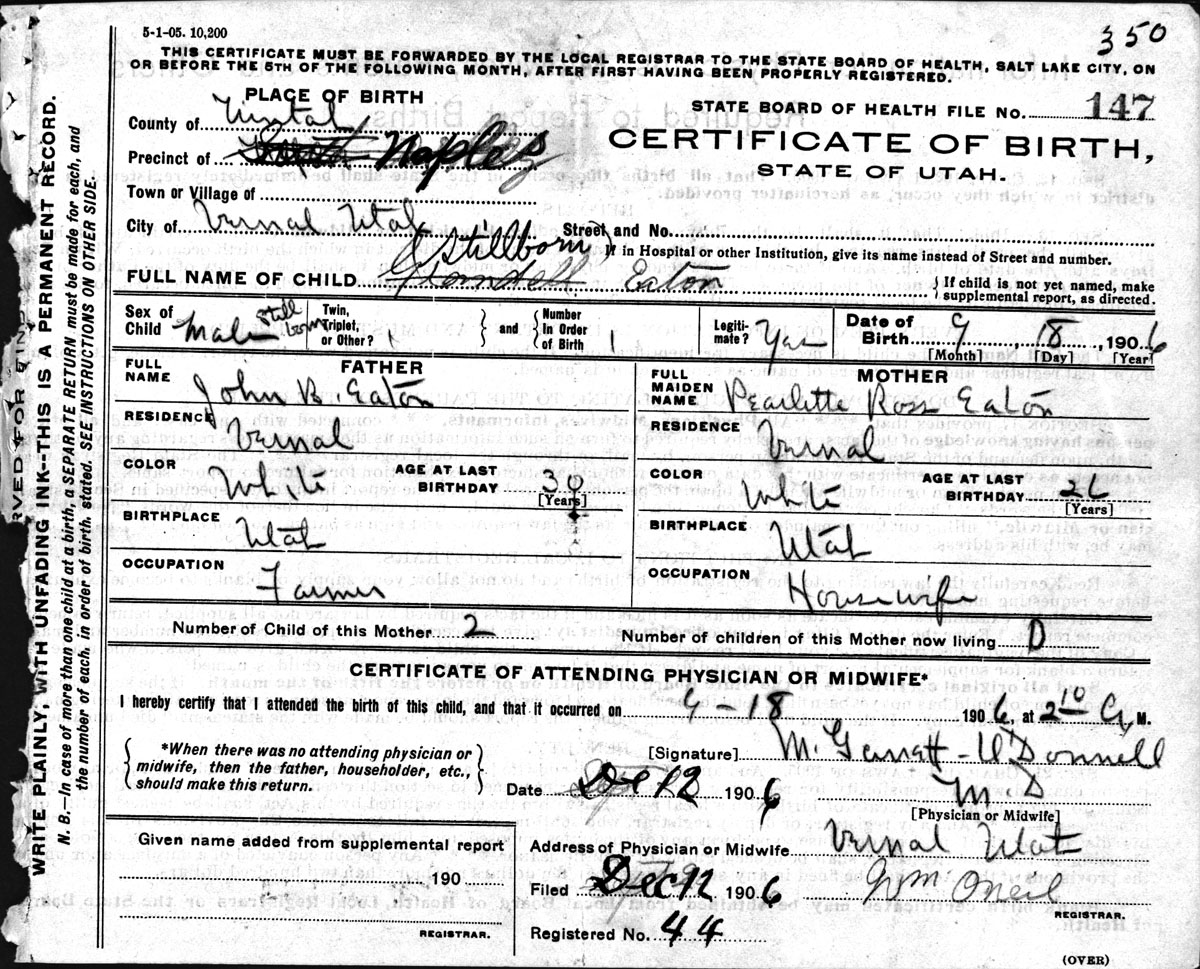 5-1-05. 10,200
350
THIS CERTIFICATE MUST BE FORWARDED BY THE LOCAL REGISTRAR TO THE STATE BOARD OF HEALTH, SALT LAKE CITY, ON
OR BEFORE THE 5TH OF THE FOLLOWING MONTH, AFTER FIRST HAVING BEEN PROPERLY REGISTERED.
PLACE OF BIRTH
STATE BOARD OF HEALTH FILE No. 147
CERTIFICATE OF BIRTH,
STATE OF UTAH.
County of
Precinct of Naples
Town or Village of
City of Vernal Utah Street and No.
If in Hospital or other Institution, give its name instead of Street and number.
Stillborn
FULL NAME OF CHILD Eaton
If child is not yet named, make
supplemental report, as directed.
Sex of Child Male Still born
Twin, Triplet, or Other?
and Number In Order of Birth 1
Legitimate? Yes
Date of Birth 9, 18, 1906
[Month] [Day] [Year]
FATHER
FULL NAME John B. Eaton
RESIDENCE Vernal
COLOR White
AGE AT LAST BIRTHDAY
[Years]
BIRTHPLACE Utah
OCCUPATION Farmer
MOTHER
FULL MAIDEN NAME Pearlette Ross Eaton
RESIDENCE Vernal
COLOR White
AGE AT LAST BIRTHDAY 26
[Years]
BIRTHPLACE Utah
OCCUPATION Housewife
Number of Child of this Mother 2
Number of children of this Mother now living 0
CERTIFICATE OF ATTENDING PHYSICIAN OR MIDWIFE*
I hereby certify that I attended the birth of this child, and that it occurred on 9-18 1906, at 2 10 A, M.
*When there was no attending physician or
midwife, then the father, householder, etc.,
should make this return.
[Signature]
Date Dec 12 1906
M.D
[Physician or Midwife]
Given name added from supplemental report
190
REGISTRAR.
Address of Physician or Midwife Vernal Utah
Filed Dec 12 1906 Wm O'Neil
REGISTRAR.
Registered No. 44
(OVER)
WRITE PLAINLY, WITH UNFADING INK-THIS IS A PERMANENT RECORD.
N. B.—In case of more than one child at a birth, a SEPARATE RETURN must be made for each, and
the number of each, in order of birth, stated. SEE INSTRUCTIONS ON OTHER SIDE.